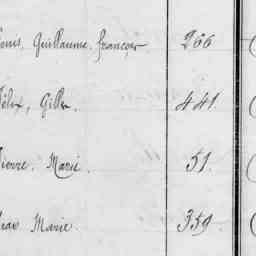 ouis, Guillaume, françois 266
Félix, Gilles 441.
Pierre, Marie. 51.
Jean Marie 359.